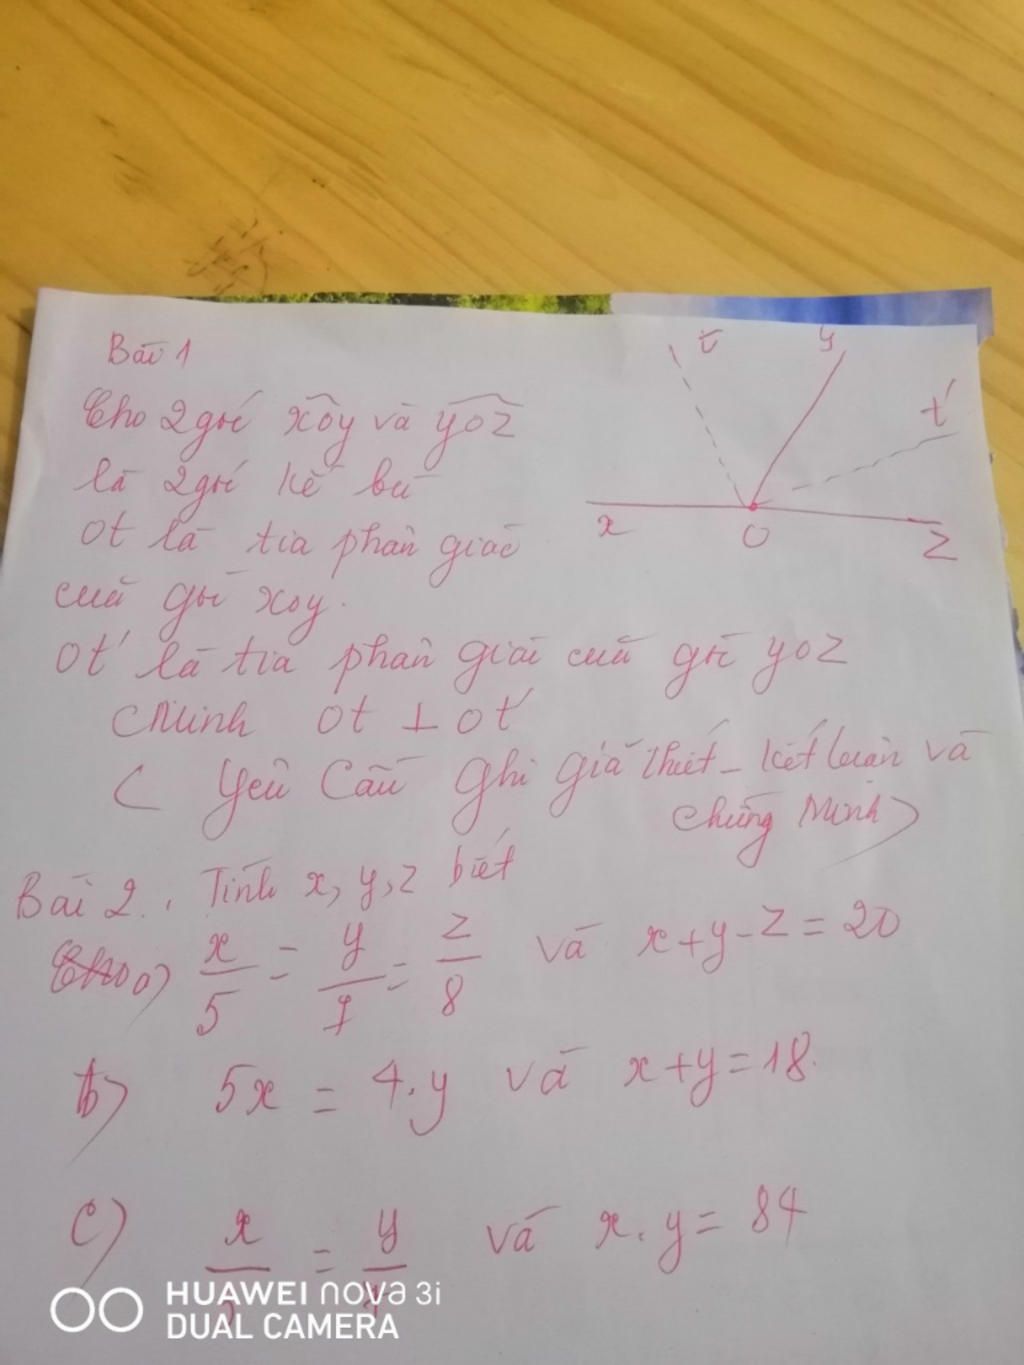 Bài 1
Cho 2 góc xOy và yOz
là 2 góc kề bù
Ot là tia phân giác
của góc xOy.
Ot' là tia phân giác của góc yOz
CMinh Ot ⊥ Ot'
( Yêu cầu ghi giả thiết - kết luận và
chứng minh)
t y
t'
x O z
Bài 2. Tính x, y, z biết
a) x/5 = y/7 = z/8 và x+y-z = 20
b) 5x = 4.y và x+y=18.
c) x = y và x.y = 84
HUAWEI nova 3i
DUAL CAMERA